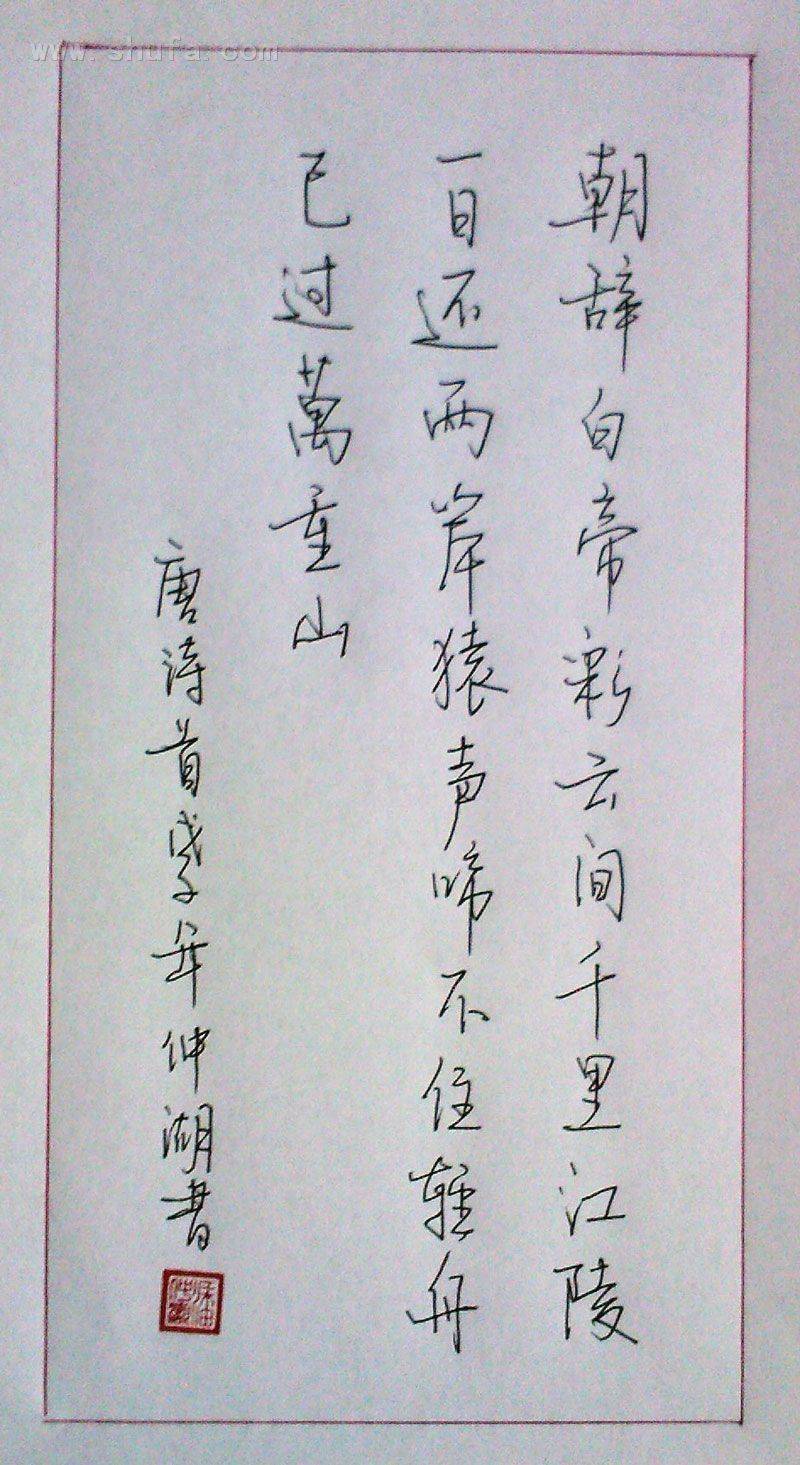 www.shufa.com
朝辞白帝彩云间千里江陵
一日还两岸猿声啼不住轻舟
已过萬重山
唐诗首戊子年仲湖书